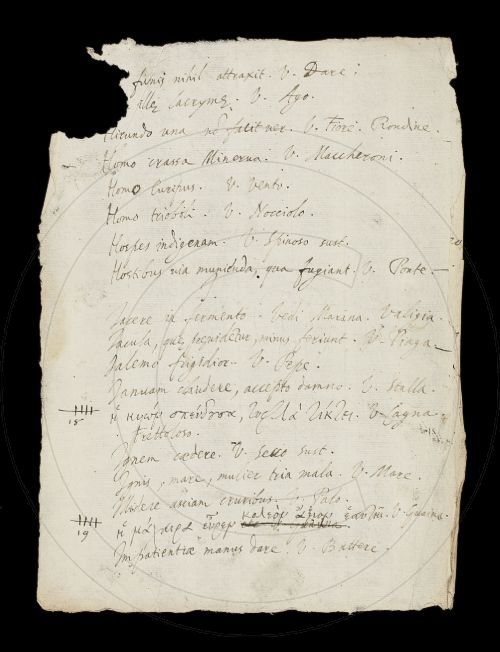 funis nihil attraxit. V. Dare.
illę lacrymę. V. Ago.
Hirundo una nō facit ver. V. Fiore. Rondine.
Homo crassa Minerva. V. Maccheroni.
Homo V. Vento.
Homo trioboli. V. Nocciolo.
Hospes indigenam. V. Spinoso sust.
Hostibus via munienda, qua fugiant. V. Ponte.
Jacere in fermento. Vedi Marina. Valigia.
Jacula, quę providetur, minus feriunt. V. Piaga
Jalemo frigidior. V. Pepe.
Januam claudere, accepto damno. V. Stalla.
15
ἡ κυων σπεύδουσα, τυφλὰ τίκτει. V. Cagna
frettolosa.
Ignem cædere. V. Secco sust.
Ignis, mare, mulier tria mala. V. Mare.
Illidere cruribus. V. Palo.
19
ἡ εὗρεν ἄξιον ἑαυτῆς. V.
Impatientiæ manus dare. V. Battere.